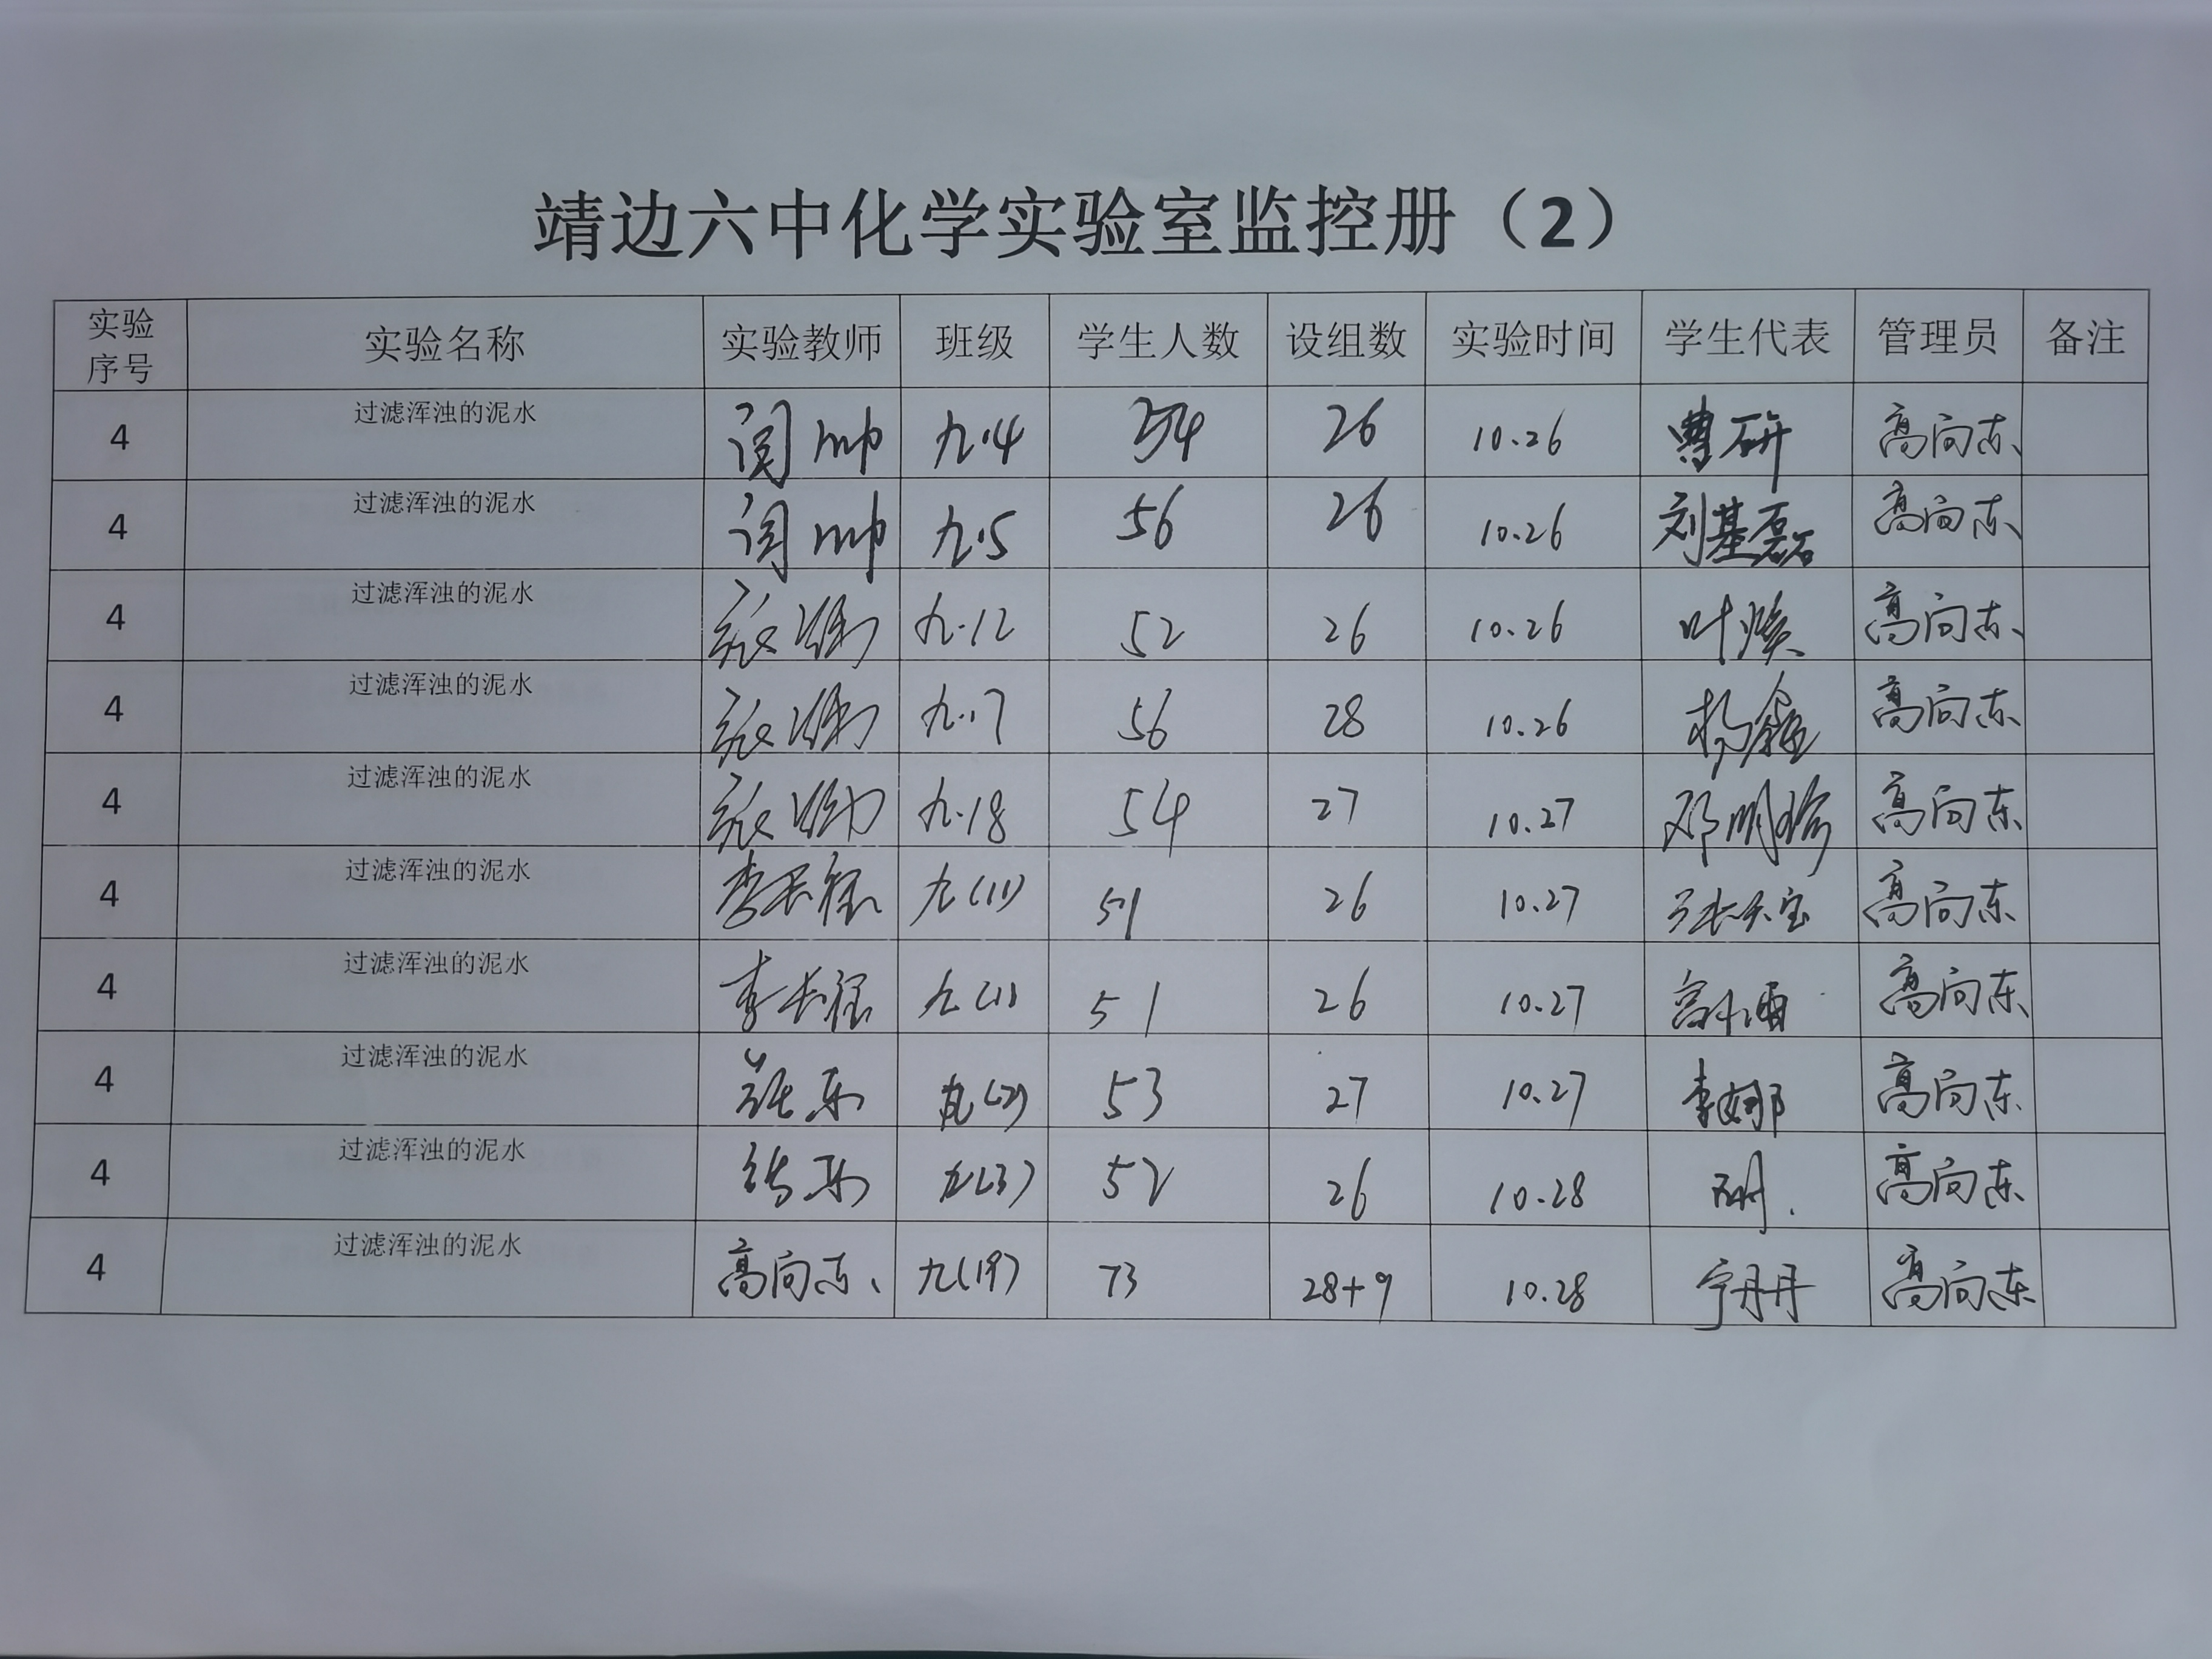 靖边六中化学实验室监控册（2）
实验序号 实验名称 实验教师 班级 学生人数 设组数 实验时间 学生代表 管理员 备注
4 过滤浑浊的泥水 闫帅 九.4 54 26 10.26 曹研 高向东
4 过滤浑浊的泥水 闫帅 九.5 56 26 10.26 刘基磊 高向东
4 过滤浑浊的泥水 九.12 52 26 10.26 叶焕 高向东
4 过滤浑浊的泥水 九.17 56 28 10.26 杨鑫 高向东
4 过滤浑浊的泥水 九.18 54 27 10.27 邓明珍 高向东
4 过滤浑浊的泥水 九(11) 51 26 10.27 张天宝 高向东
4 过滤浑浊的泥水 九(1) 51 26 10.27 高向东
4 过滤浑浊的泥水 九(2) 53 27 10.27 李娜 高向东
4 过滤浑浊的泥水 九(3) 52 26 10.28 高向东
4 过滤浑浊的泥水 高向东 九(19) 73 28+9 10.28 宁丹丹 高向东